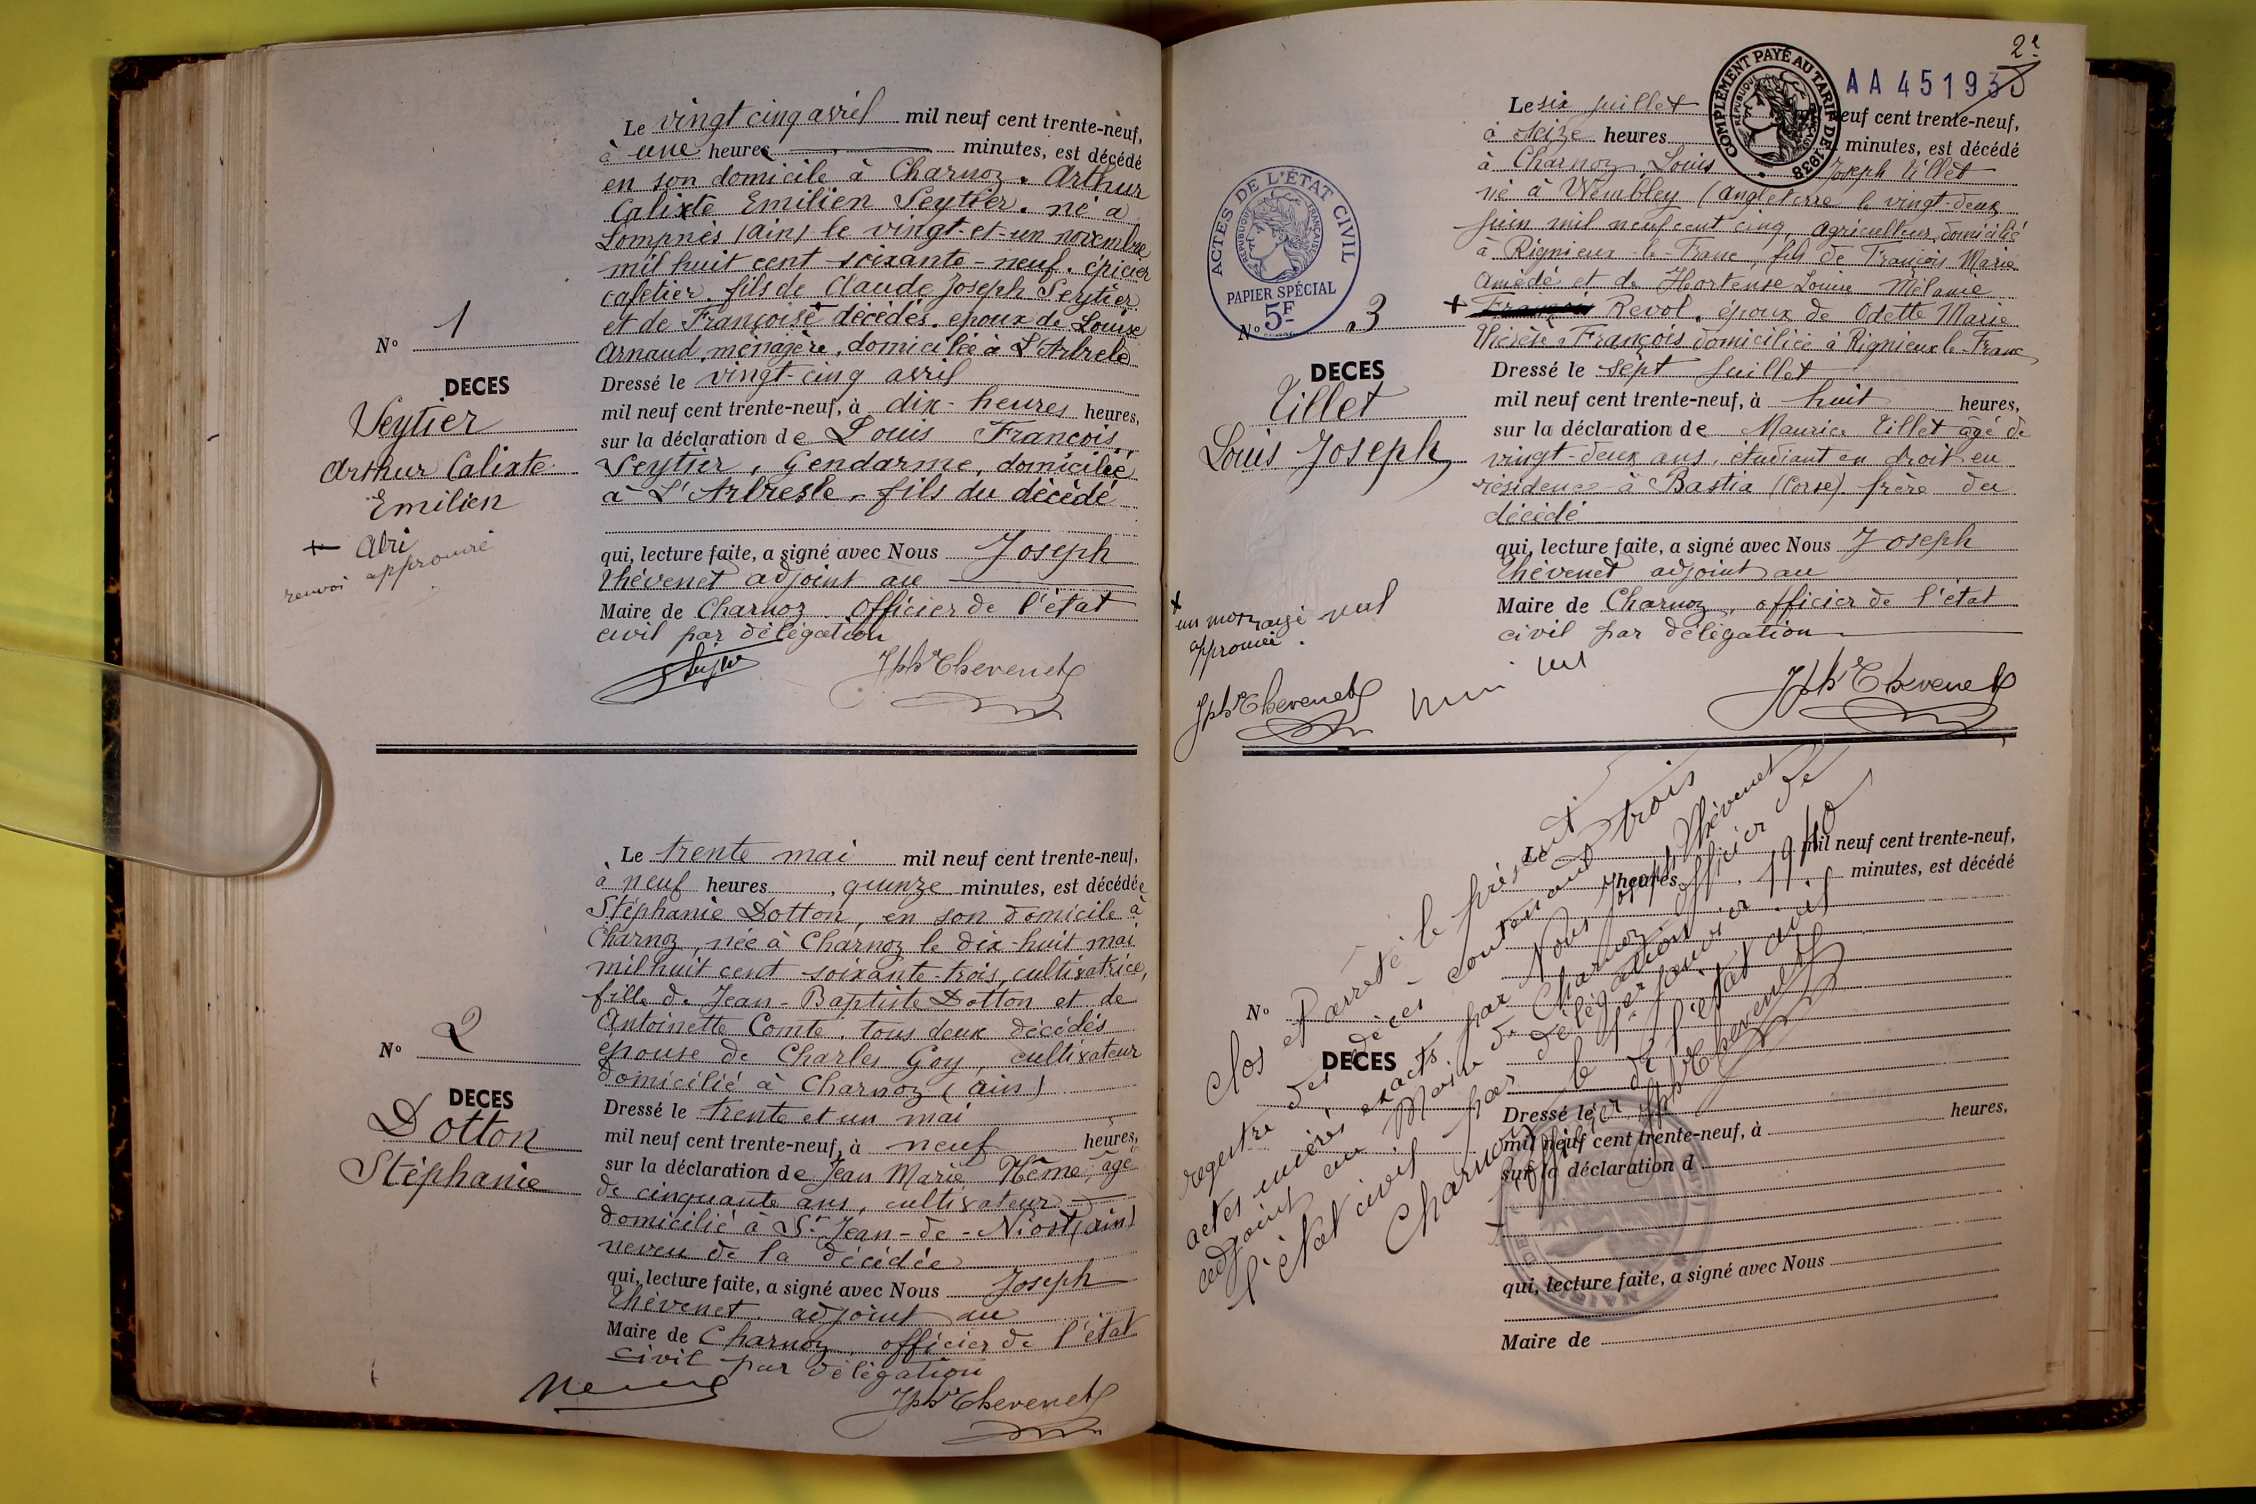 Le vingt cinq avril mil neuf cent trente-neuf,
à une heures minutes, est décédé
en son domicile à Charnoz. Arthur
Calixte Emilien Seytier. né à
Lompnès (ain) le vingt-et-un novembre
mil huit cent soixante-neuf. épicier
cafetier. fils de Claude Joseph Seytier
et de Françoise + décédés. epoux de Louise
Arnaud, ménagère, domiciliée à L'Arbrele
N° 1
DECES
Seytier
Arthur Calixte
Emilien
+ Abri
renvoi approuvé
Dressé le vingt-cinq avril
mil neuf cent trente-neuf, à dix-heures heures,
sur la déclaration de Louis François
Seytier, Gendarme, domicilié
à L'Arbresle, fils du décédé
qui, lecture faite, a signé avec Nous Joseph
Thévenet adjoint au
Maire de Charnoz. Officier de l'état
civil par délégation
Jph Thevenet
Le trente mai mil neuf cent trente-neuf,
à neuf heures, quinze minutes, est décédée
Stéphanie Dotton, en son domicile à
Charnoz, née à Charnoz le dix-huit mai
mil huit cent soixante-trois, cultivatrice,
fille de Jean-Baptiste Dotton et de
Antoinette Comte, tous deux décédés
epouse de Charles Goy, cultivateur
domicilié à Charnoz (ain)
N° 2
DECES
Dotton
Stéphanie
Dressé le trente et un mai
mil neuf cent trente-neuf, à neuf heures,
sur la déclaration de Jean Marie âgé
de cinquante ans, cultivateur
domicilié à St Jean-de-Niost (ain)
neveu de la décédée
qui, lecture faite, a signé avec Nous Joseph
Thévenet, adjoint au
Maire de Charnoz, officier de l'état
civil par délégation
Jph Thevenet
2e
AA 45193
COMPLÉMENT PAYÉ AU TARIF DE 1938
RÉPUBLIQUE FRANÇAISE
Le six juillet neuf cent trente-neuf,
à seize heures minutes, est décédé
à Charnoz, Louis Joseph Tillet
né à Wembley (angleterre le vingt-deux
juin mil neuf cent cinq agriculteur, domicilié
à Rignieux-le-Franc, fils de François Marie
Amédé et de Hortense Louise Mélanie
+ François Revol. époux de Odette Marie
Thérèse François domiciliée à Rignieux le Franc
ACTES DE L'ÉTAT CIVIL
RÉPUBLIQUE FRANÇAISE
PAPIER SPÉCIAL
5F
N° 3
DECES
Tillet
Louis Joseph
Dressé le sept juillet
mil neuf cent trente-neuf, à huit heures,
sur la déclaration de Maurice Tillet âgé de
vingt-deux ans, étudiant en droit en
résidence à Bastia (Corse) frère du
décédé
qui, lecture faite, a signé avec Nous Joseph
Thévenet adjoint au
Maire de Charnoz, officier de l'état
civil par délégation
x un mot rayé nul
approuvé.
Jph Thevenet
Jph Thevenet
Le mil neuf cent trente-neuf,
heures minutes, est décédé
N°
DECES
Dressé le
mil neuf cent trente-neuf, à heures,
sur la déclaration d
qui, lecture faite, a signé avec Nous
Maire de
Clos et arrêté le présent
registre des décès contenant trois
actes exacts, par Nous Joseph Thévenet
adjoint au Maire de Charnoz officier de
l'état civil par délégation
Charnoz le 1er janvier 1940
L'officier de l'état civil
Jph Thevenet